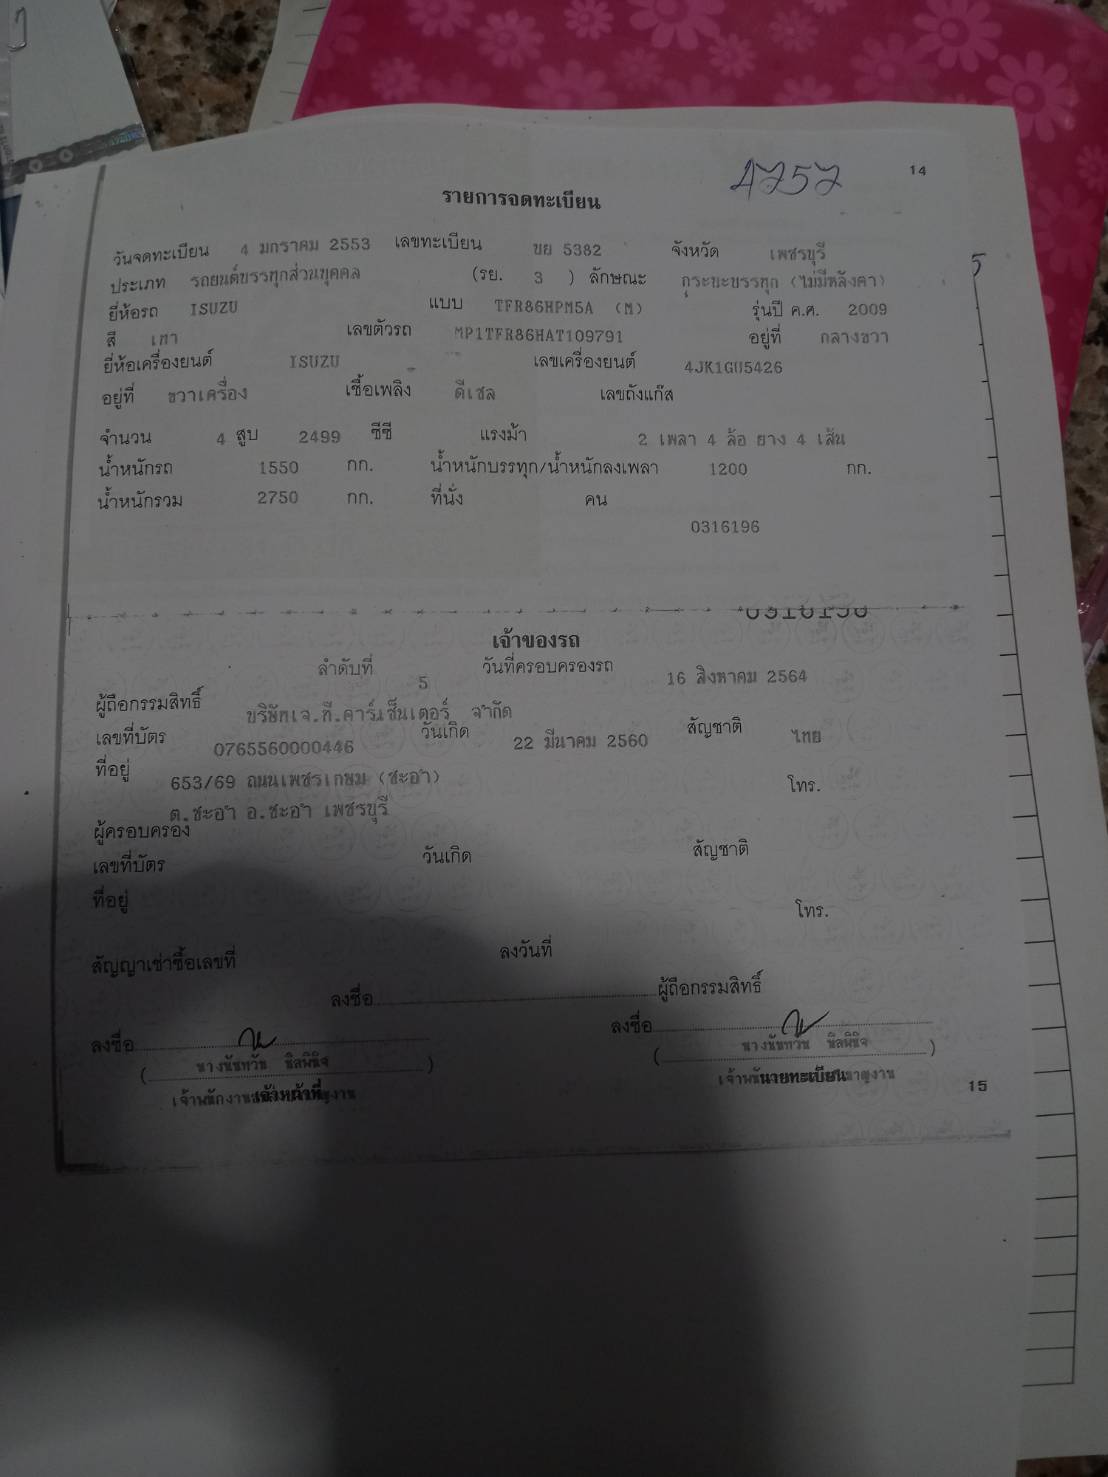 4757
14
รายการจดทะเบียน
วันจดทะเบียน 4 มกราคม 2553 เลขทะเบียน ขย 5382 จังหวัด เพชรบุรี
ประเภท รถยนต์บรรทุกส่วนบุคคล (รย. 3 ) ลักษณะ กระบะบรรทุก (ไม่มีหลังคา)
ยี่ห้อรถ ISUZU แบบ TFR86HPM5A (M) รุ่นปี ค.ศ. 2009
สี เทา เลขตัวรถ MP1TFR86HAT109791 อยู่ที่ กลางขวา
ยี่ห้อเครื่องยนต์ ISUZU เลขเครื่องยนต์ 4JK1GU5426
อยู่ที่ ขวาเครื่อง เชื้อเพลิง ดีเซล เลขถังแก๊ส
จำนวน 4 สูบ 2499 ซีซี แรงม้า 2 เพลา 4 ล้อ ยาง 4 เส้น
น้ำหนักรถ 1550 กก. น้ำหนักบรรทุก/น้ำหนักลงเพลา 1200 กก.
น้ำหนักรวม 2750 กก. ที่นั่ง คน
0316196
0316196
เจ้าของรถ
ลำดับที่ 5 วันที่ครอบครองรถ 16 สิงหาคม 2564
ผู้ถือกรรมสิทธิ์ บริษัทเจ.ที.คาร์เซ็นเตอร์ จำกัด
เลขที่บัตร 0765560000446 วันเกิด 22 มีนาคม 2560 สัญชาติ ไทย
ที่อยู่ 653/69 ถนนเพชรเกษม (ชะอำ) โทร.
ต.ชะอำ อ.ชะอำ เพชรบุรี
ผู้ครอบครอง
เลขที่บัตร วันเกิด สัญชาติ
ที่อยู่ โทร.
สัญญาเช่าซื้อเลขที่ ลงวันที่
ลงชื่อ ผู้ถือกรรมสิทธิ์
ลงชื่อ ลงชื่อ
( ) ( )
เจ้าหน้าที่ นายทะเบียน
15